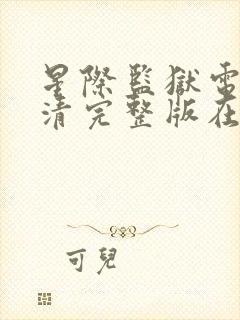 星際監獄電
清完整版在
可兒